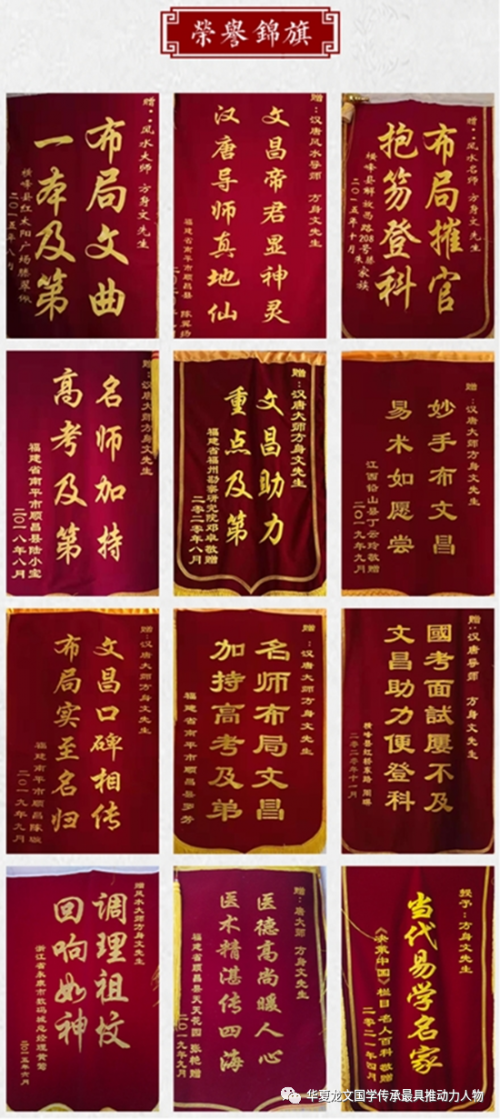 榮譽錦旗
赠：风水大师 方身文先生
布局文曲
一本及第
二〇一五年八月
赠：汉唐风水导师 方身文先生
文昌帝君显神灵
汉唐导师真地仙
福建省南平市顺昌县
赠：风水名师 方身文先生
布局摧官
抱笏登科
横峰县解放西路208号 朱家族
二〇一五年十月
赠：汉唐大师方身文先生
名师加持
高考及第
福建省南平市顺昌县陆小宝
二〇一八年八月
赠：汉唐大师方身文先生
文昌助力
重点及第
福建省福州勘察研究院邓卓敬赠
二〇二〇年八月
赠：汉唐大师方身文先生
妙手布文昌
易术如愿尝
江西铅山县丁云玲敬赠
二〇一九年九月
赠：汉唐大师方身文先生
文昌口碑相传
布局实至名归
福建省南平市顺昌陈
二〇一九年九月
赠：汉唐大师方身文先生
名师布局文昌
加持高考及弟
福建省南平市顺昌县罗芳
赠：汉唐导师 方身文先生
國考面試屢不及
文昌助力便登科
二〇二〇年十一月
赠风水大师方身文先生
调理祖坟
回响如神
浙江省永康市数码城总经理黄菊
赠：唐大师 方身文先生
医德高尚暖人心
医术精湛传四海
福建省顺昌县天天花园 张艳赠
二〇一九年九月
授予：方身文先生
当代易学名家
《承赢中国》栏目 名人百科 敬赠
二〇二一年四月
华夏龙文国学传承最具推动力人物